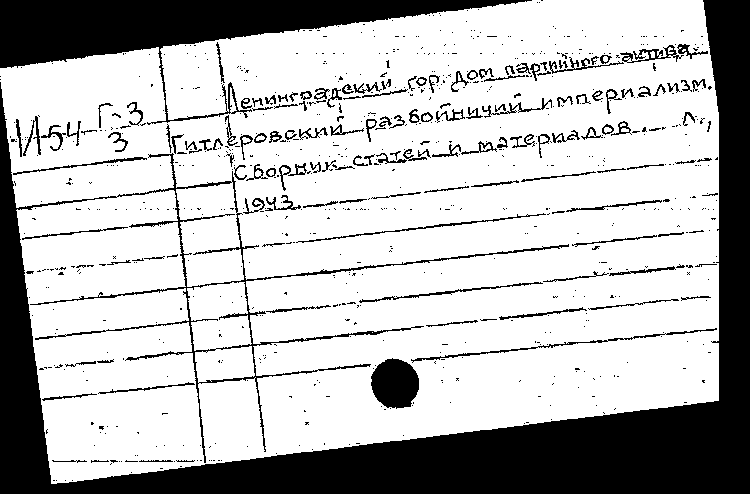 Ленинградский гор. дом партийного актива.
И54 Г-3
3
Гитлеровский разбойничий империализм.
Сборник статей и материалов. Л.,
1943.